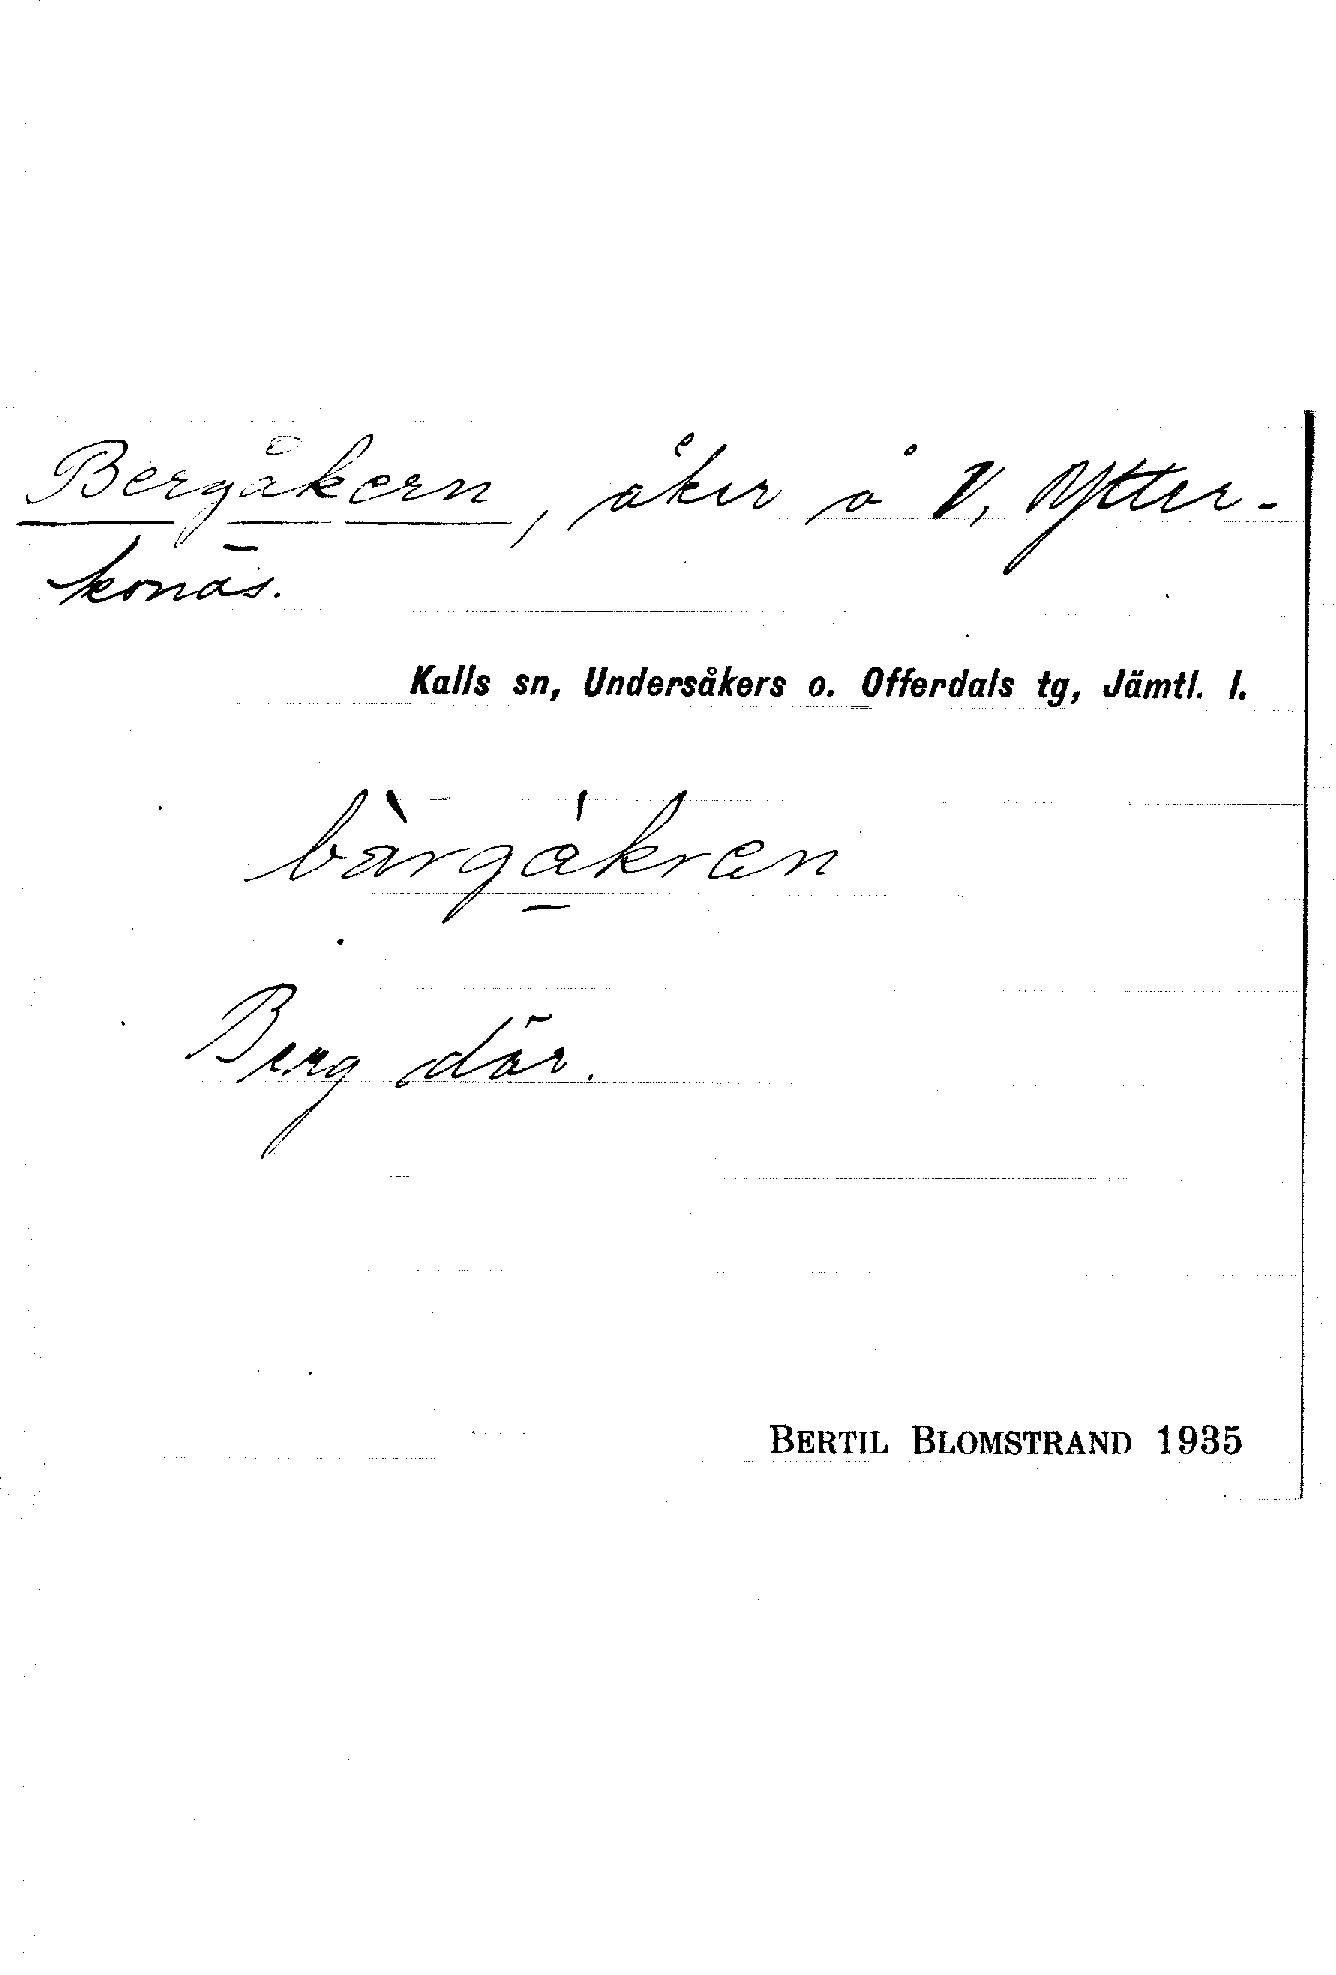 Bergåkern, åker å V. Ytter-
konäs.
Kalls sn, Undersåkers o. Offerdals tg, Jämtl. l.
bàrgákren
Berg där.
BERTIL BLOMSTRAND 1935